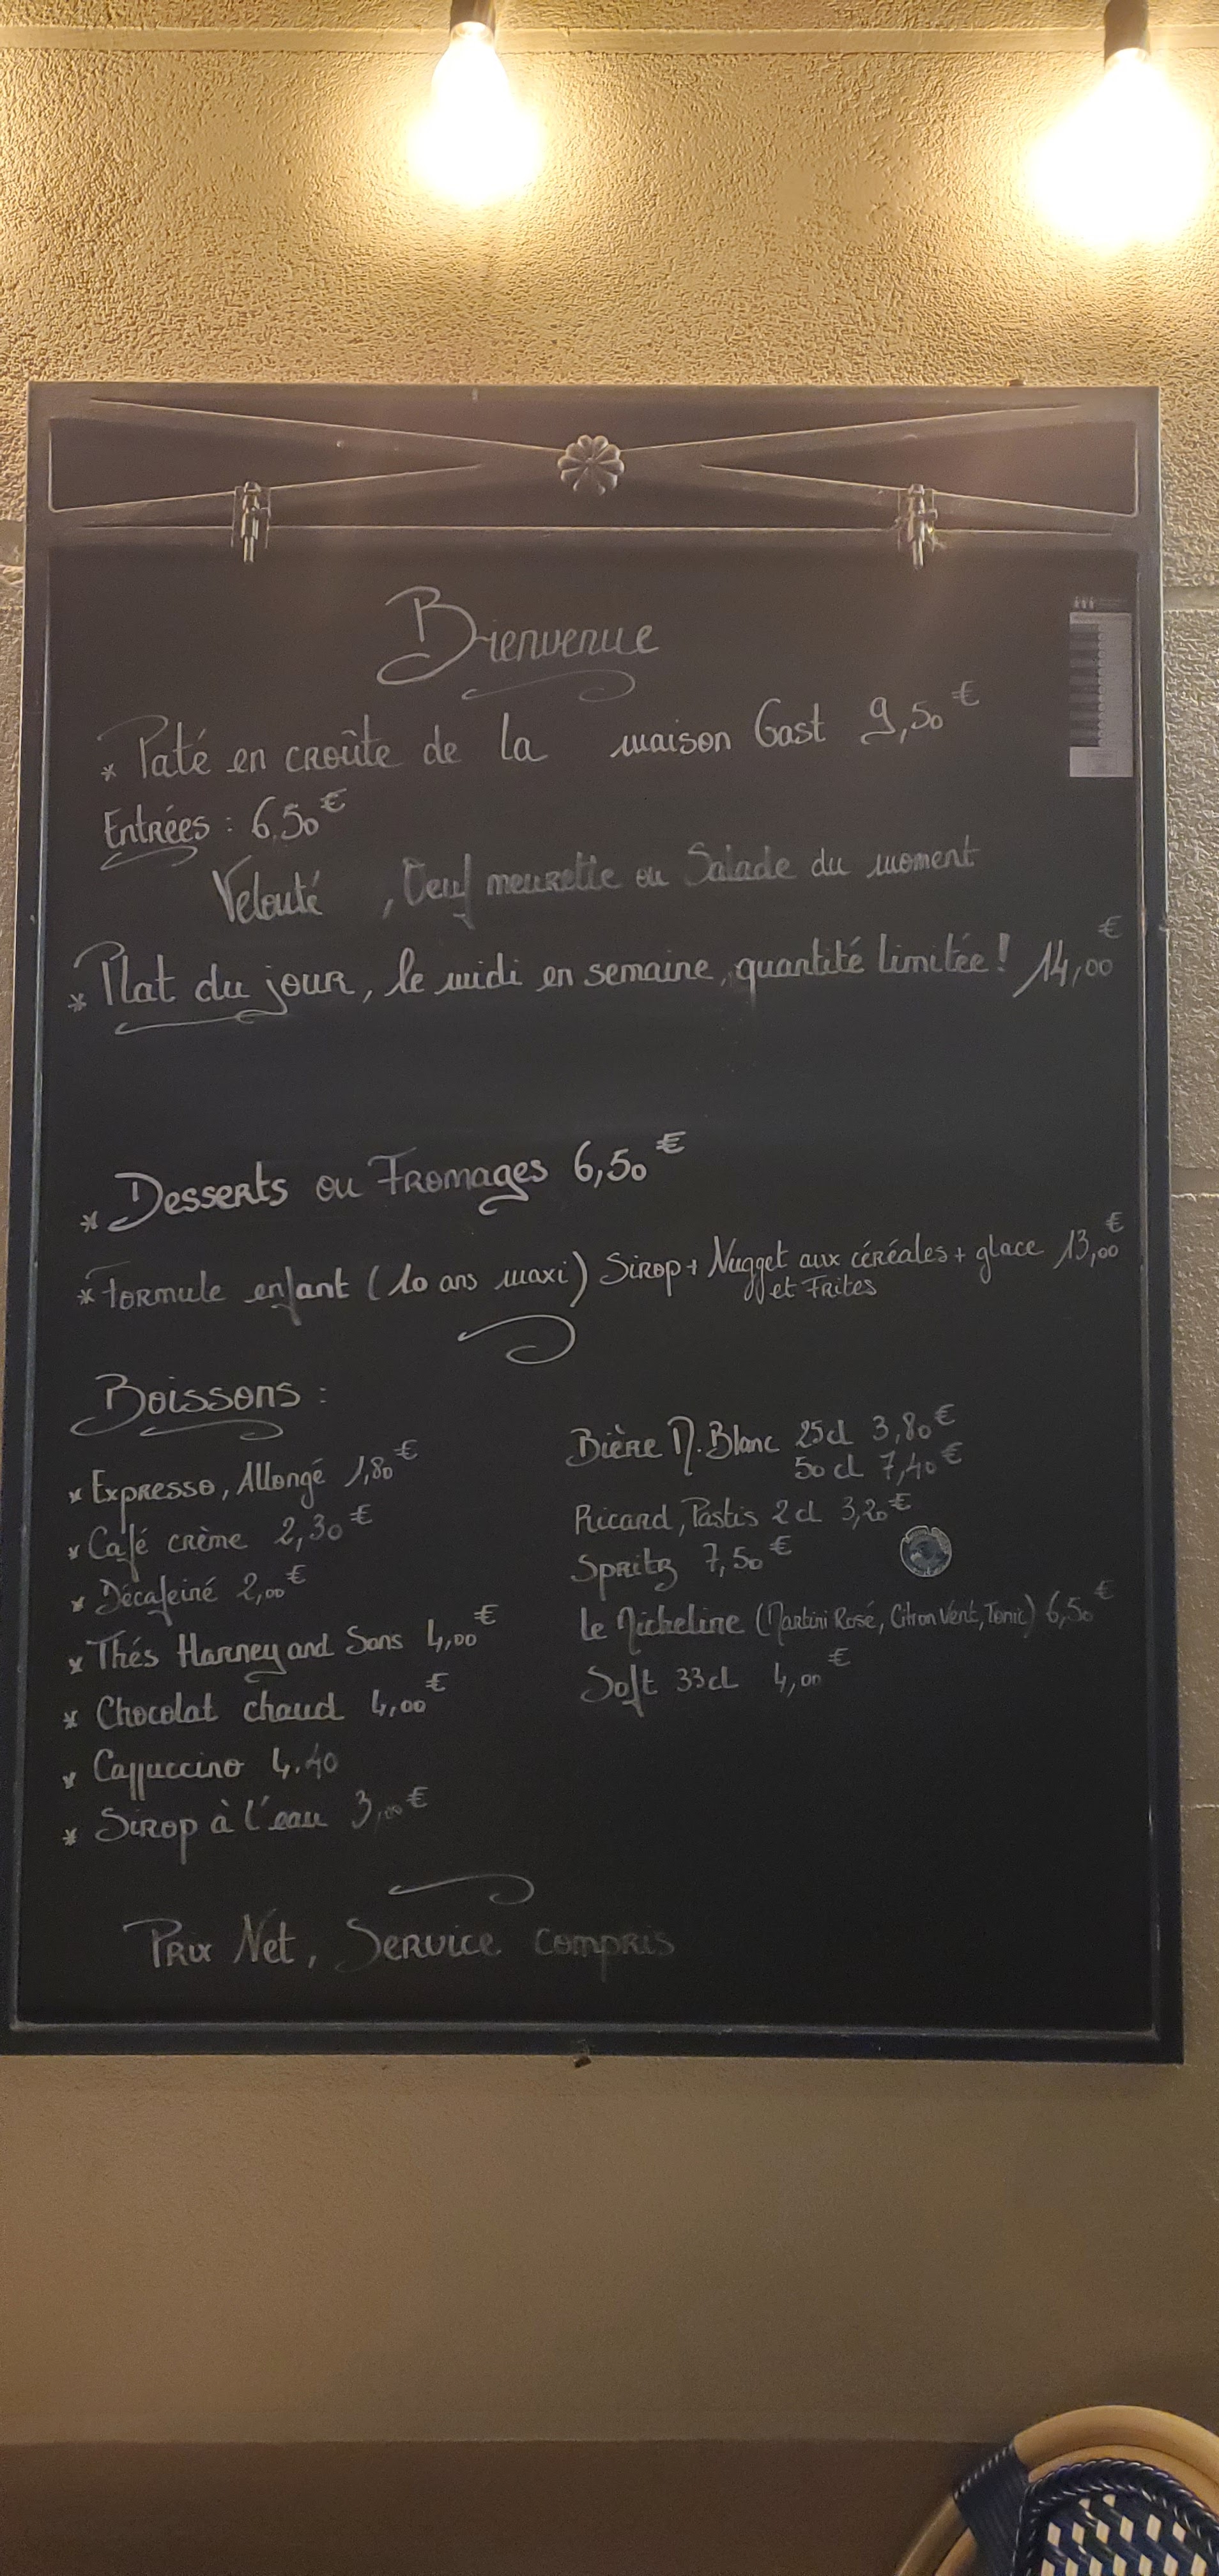 Bienvenue
* Paté en croûte de la maison Gast 9,50€
Entrées : 6.50€
Velouté , Oeuf meurette ou Salade du moment
* Plat du jour, le midi en semaine, quantité limitée! 14,00€
* Desserts ou Fromages 6,50€
* Formule enfant (10 ans maxi) Sirop + Nugget aux céréales + glace 13,00€
et Frites
Boissons :
* Expresso, Allongé 1,80€
* Café crème 2,30€
* Décafeiné 2,00€
* Thés Harney and Sons 4,00€
* Chocolat chaud 4,00€
* Cappuccino 4.40
* Sirop à l'eau 3,00€
Bière M.Blanc 25cl 3,80€
50 cl 7,40€
Ricard, Pastis 2 cl 3,20€
Spritz 7,50€
Le Micheline (Martini Rosé, Citron Vert, Tonic) 6,50€
Soft 33cl 4,00€
Prix Net, Service compris